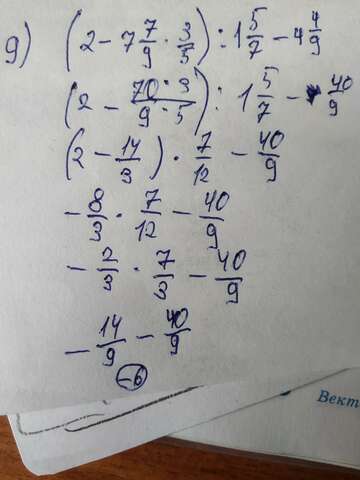 9) (2 - 7 7/9 · 3/5) : 1 5/7 - 4 4/9
(2 - 70 · 3 / 9 · 5) : 1 5/7 - 40/9
(2 - 14/3) · 7/12 - 40/9
- 8/3 · 7/12 - 40/9
- 2/3 · 7/3 - 40/9
- 14/9 - 40/9
-6
Вект